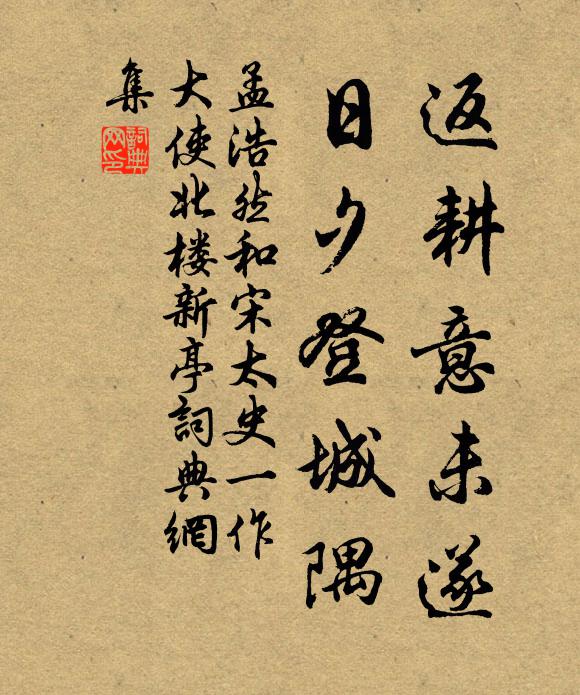 返耕意未遂
日夕登城隅
孟浩然和宋太史一作
大使北楼新亭詞典網
集
詞典
网印